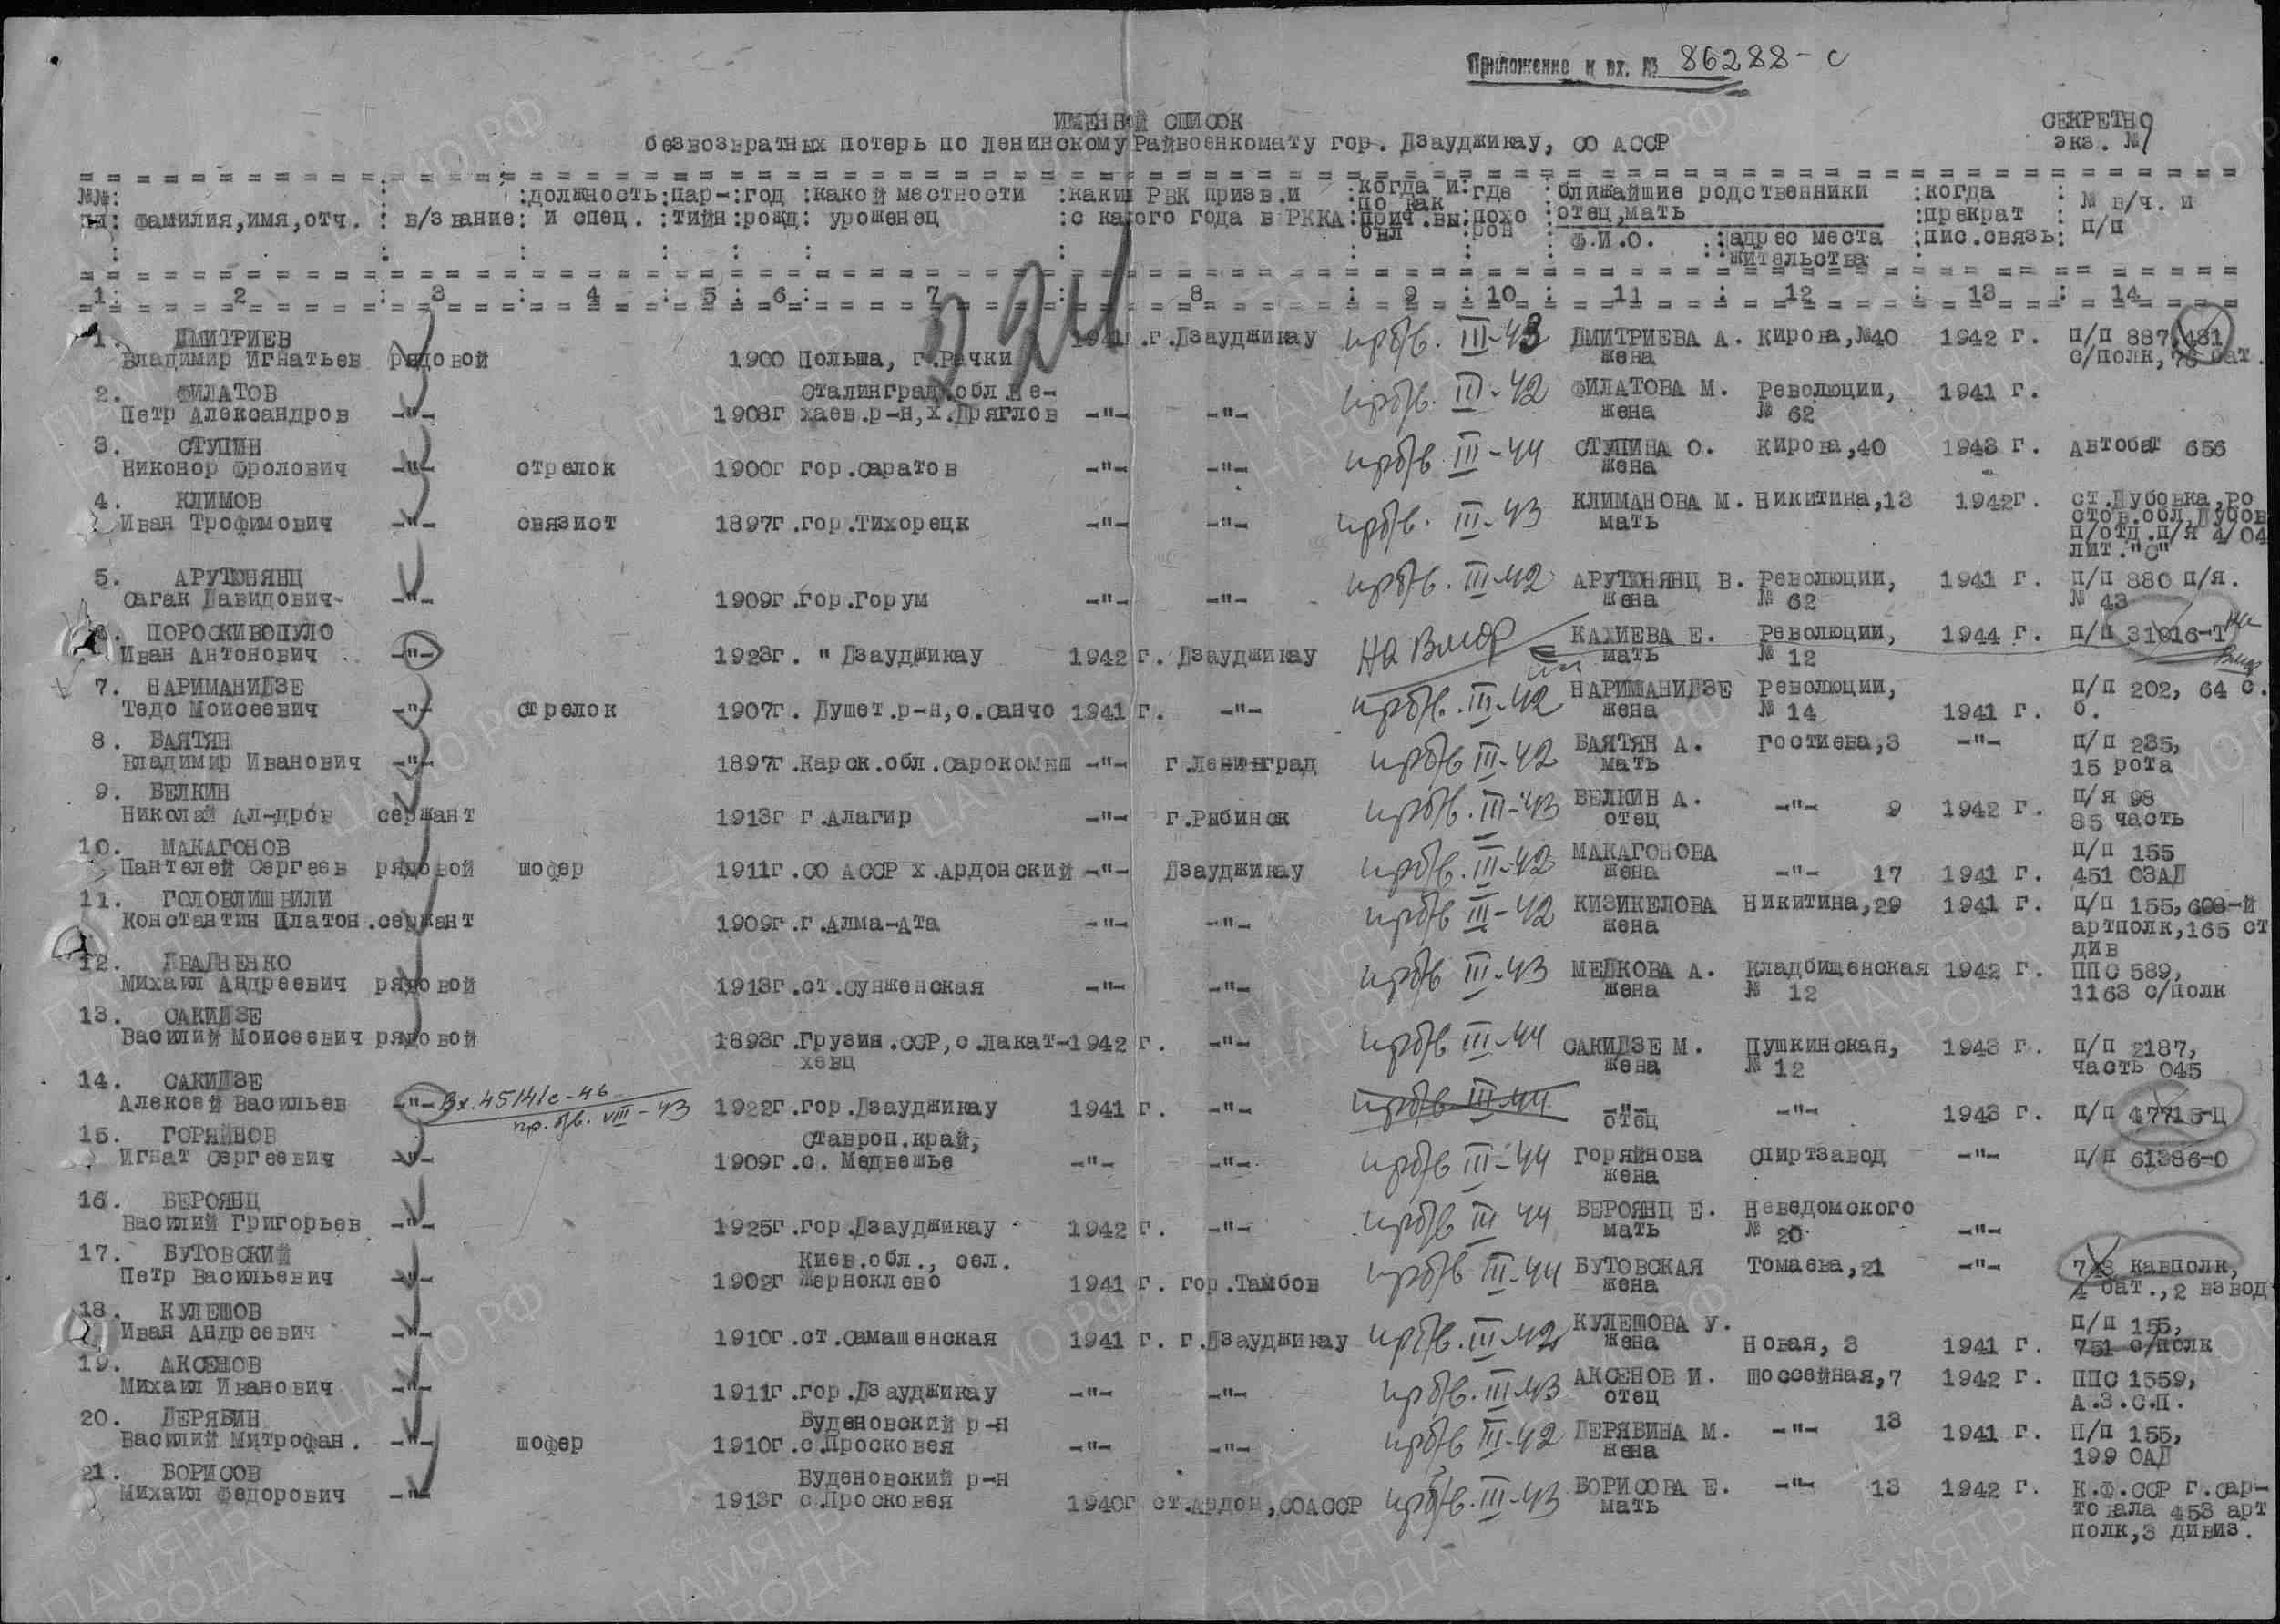 Приложение к вх. № 86288-с
ИМЕННОЙ СПИСОК
СЕКРЕТНО
безвозвратных потерь по Ленинскому Райвоенкомату гор. Дзауджикау, СО АССР
экз. №
№№ пп : фамилия,имя,отч. : в/звание : должность и спец. : пар-тийн : год рожд : какой местности уроженец : каким РВК призв.и с какого года в РККА : когда и по как прич.выбыл : где похорон : ближайшие родственники отец,мать Ф.И.О. : адрес места жительства : когда прекрат пис.связь : № в/ч. и п/п
1 : 2 : 3 : 4 : 5 : 6 : 7 : 8 : 9 : 10 : 11 : 12 : 13 : 14
224
1. ДМИТРИЕВ 1941г.г.Дзауджикау пр б/в. III-43 ДМИТРИЕВА А. Кирова,№40 1942 г. П/п 887,481
Владимир Игнатьев рядовой 1900 Польша, г.Рачки жена с/полк,76 бат.
2. ФИЛАТОВ Сталинград.обл.Не- пр б/в. III-42 ФИЛАТОВА М. Революции, 1941 г.
Петр Александров -"- 1908г хаев.р-н,х.Дряглов -"- -"- жена № 62
3. СТУПИН пр б/в III-44 СТУПИНА О. Кирова,40 1943 г. Автобат 656
Никонор Фролович -"- стрелок 1900г гор.Саратов -"- -"- жена
4. КЛИМОВ пр б/в. III-43 КЛИМАНОВА М. Никитина,13 1942г. ст.Дубовка,Ро
Иван Трофимович -"- связист 1897г.гор.Тихорецк -"- -"- мать стов.обл,Дубов
п/отд.п/я 4/04
лит."С"
5. АРУТЮНЯНЦ пр б/в. III-42 АРУТЮНЯНЦ В. Революции, 1941 г. П/п 880 п/я.
Сагак Давидович -"- 1909г.гор.Горум -"- -"- жена № 62 № 43
6. ПОРОСКИВОПУЛО на Вмор КАХИЕВА Е. Революции, 1944 г. П/п 31016-Т на
Иван Антонович -"- 1923г. " Дзауджикау 1942 г. Дзауджикау мать № 12 Вмор
7. НАРИМАНИДЗЕ пр б/в. III-42 НАРИМАНИДЗЕ Революции, П/п 202, 64 с.
Тедо Моисеевич -"- стрелок 1907г. Душет.р-н,с.Санчо 1941 г. -"- жена № 14 1941 г. б.
8. БАЯТЯН пр б/в III-42 БАЯТЯН А. Гостиева,3 -"- П/п 235,
Владимир Иванович -"- 1897г.Карск.обл.Сарокомыш -"- г.Ленинград мать 15 рота
9. БЕЛКИН пр б/в. III-43 БЕЛКИН А. -"- 9 1942 г. П/я 98
Николай Ал-дров сержант 1913г г.Алагир -"- г.Рыбинск отец 85 часть
10. МАКАГОНОВ пр б/в. III-42 МАКАГОНОВА П/п 155
Пантелей Сергеев рядовой шофер 1911г.СО АССР х.Ардонский -"- Дзауджикау жена -"- 17 1941 г. 451 ОЗАД
11. ГОЛОВЛИШВИЛИ пр б/в III-42 КИЗИКЕЛОВА Никитина,29 1941 г. П/п 155,608-й
Константин Платон.сержант 1909г.г.Алма-Ата -"- -"- жена артполк,165 ст
див
12. ДВАДНЕНКО пр б/в III-43 МЕЛКОВА А. Кладбищенская 1942 г. ППС 589,
Михаил Андреевич рядовой 1913г.ст.Сунженская -"- -"- жена № 12 1163 с/полк
13. САКИДЗЕ пр б/в III-44 САКИДЗЕ М. Пушкинская, 1943 г. П/п 2187,
Василий Моисеевич рядовой 1893г.Грузия.ССР,с.Лакат- 1942 г. -"- жена № 12 часть 045
хевц
14. САКИДЗЕ пр б/в III-44 -"- -"- 1943 г. П/п 47715-Ц
Алексей Васильев -"- Вх.45141с-46 пр. б/в. VIII-43 1922г.гор.Дзауджикау 1941 г. -"- отец
15. ГОРЯЙНОВ Ставроп.край, пр б/в III-44 ГОРЯЙНОВА Спиртзавод -"- П/п 61386-О
Игнат Сергеевич -"- 1909г.с. Медвежье -"- -"- жена
16. БЕРОЯНЦ пр б/в III 44 БЕРОЯНЦ Е. Неведомского
Василий Григорьев -"- 1925г.гор.Дзауджикау 1942 г. -"- мать № 20 -"-
17. БУТОВСКИЙ Киев.обл., сел. пр б/в III-44 БУТОВСКАЯ Томаева,21 -"- кавполк,
Петр Васильевич -"- 1902г Жерноклево 1941 г. гор.Тамбов жена 4 бат.,2 взвод
18. КУЛЕШОВ пр б/в. III-42 КУЛЕШОВА У. П/п 155,
Иван Андреевич -"- 1910г.ст.Самашенская 1941 г. г.Дзауджикау жена Новая, 3 1941 г. 751 с/полк
19. АКСЕНОВ пр б/в. III-43 АКСЕНОВ И. Шоссейная,7 1942 г. ППС 1559,
Михаил Иванович -"- 1911г.гор.Дзауджикау -"- -"- отец А.З.С.П.
20. ДЕРЯБИН Буденовский р-н пр б/в III-42 ДЕРЯБИНА М. -"- 13 1941 г. П/п 155,
Василий Митрофан. -"- шофер 1910г.с.Просковея -"- -"- жена 199 ОАД
21. БОРИСОВ Буденовский р-н пр б/в. III-43 БОРИСОВА Е. -"- 13 1942 г. К.Ф.ССР г.Сар-
Михаил Федорович -"- 1913г с.Просковея 1940г ст.Ардон,СОАССР мать товала 453 арт
полк,3 дивиз.